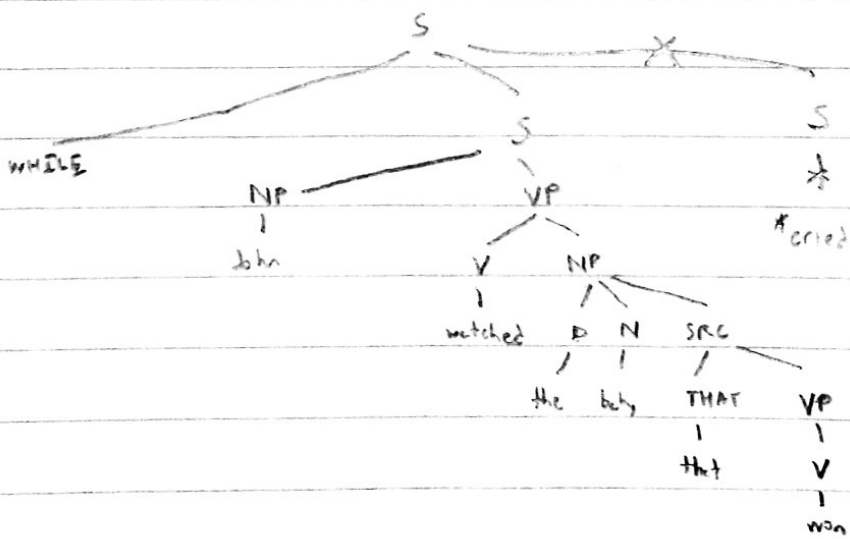 S
S S
WHILE
NP VP
*cried
John V NP
watched D N SRC
the baby THAT VP
that V
won